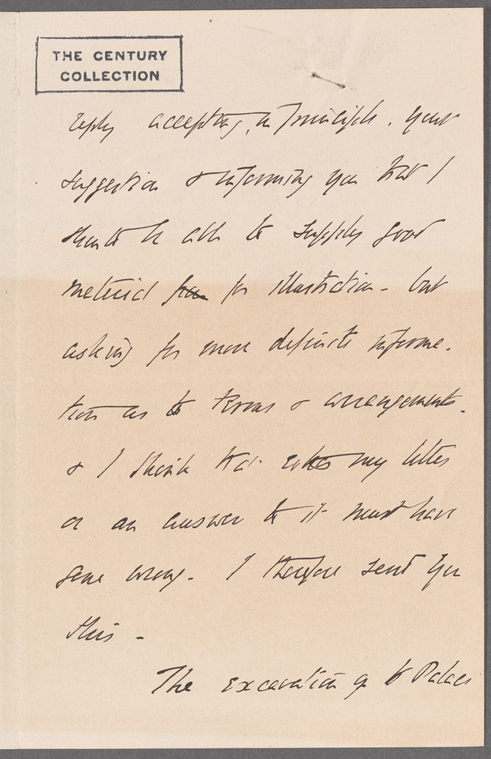 THE CENTURY
COLLECTION
reply accepting, in principle, your
suggestion & informing you that I
should be able to supply good
material for illustration - but
asking for more definite informa-
tion as to terms & arrangements.
& I think that either my letter
or an answer to it must have
gone wrong. I therefore send you
this -
The excavation of the Palace